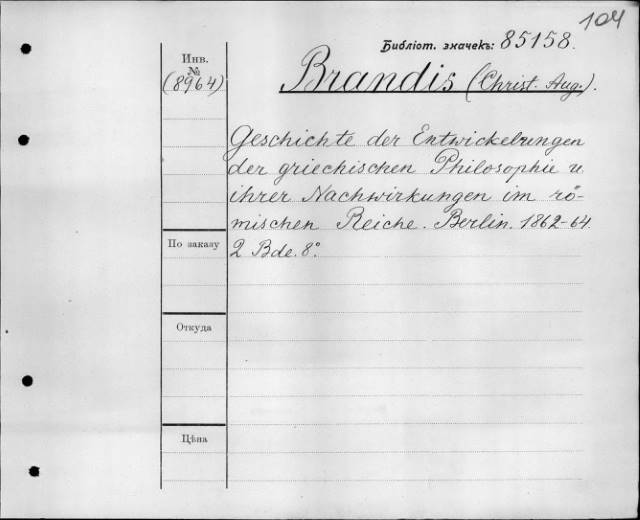 104
Библіот. значекъ: 85158.
Инв.
№
(8964)
Brandis (Christ. Aug.).
Geschichte der Entwickelungen
der griechischen Philosophie u.
ihrer Nachwirkungen im rö-
mischen Reiche. Berlin. 1862-64.
По заказу
2 Bde. 8°.
Откуда
Цѣна